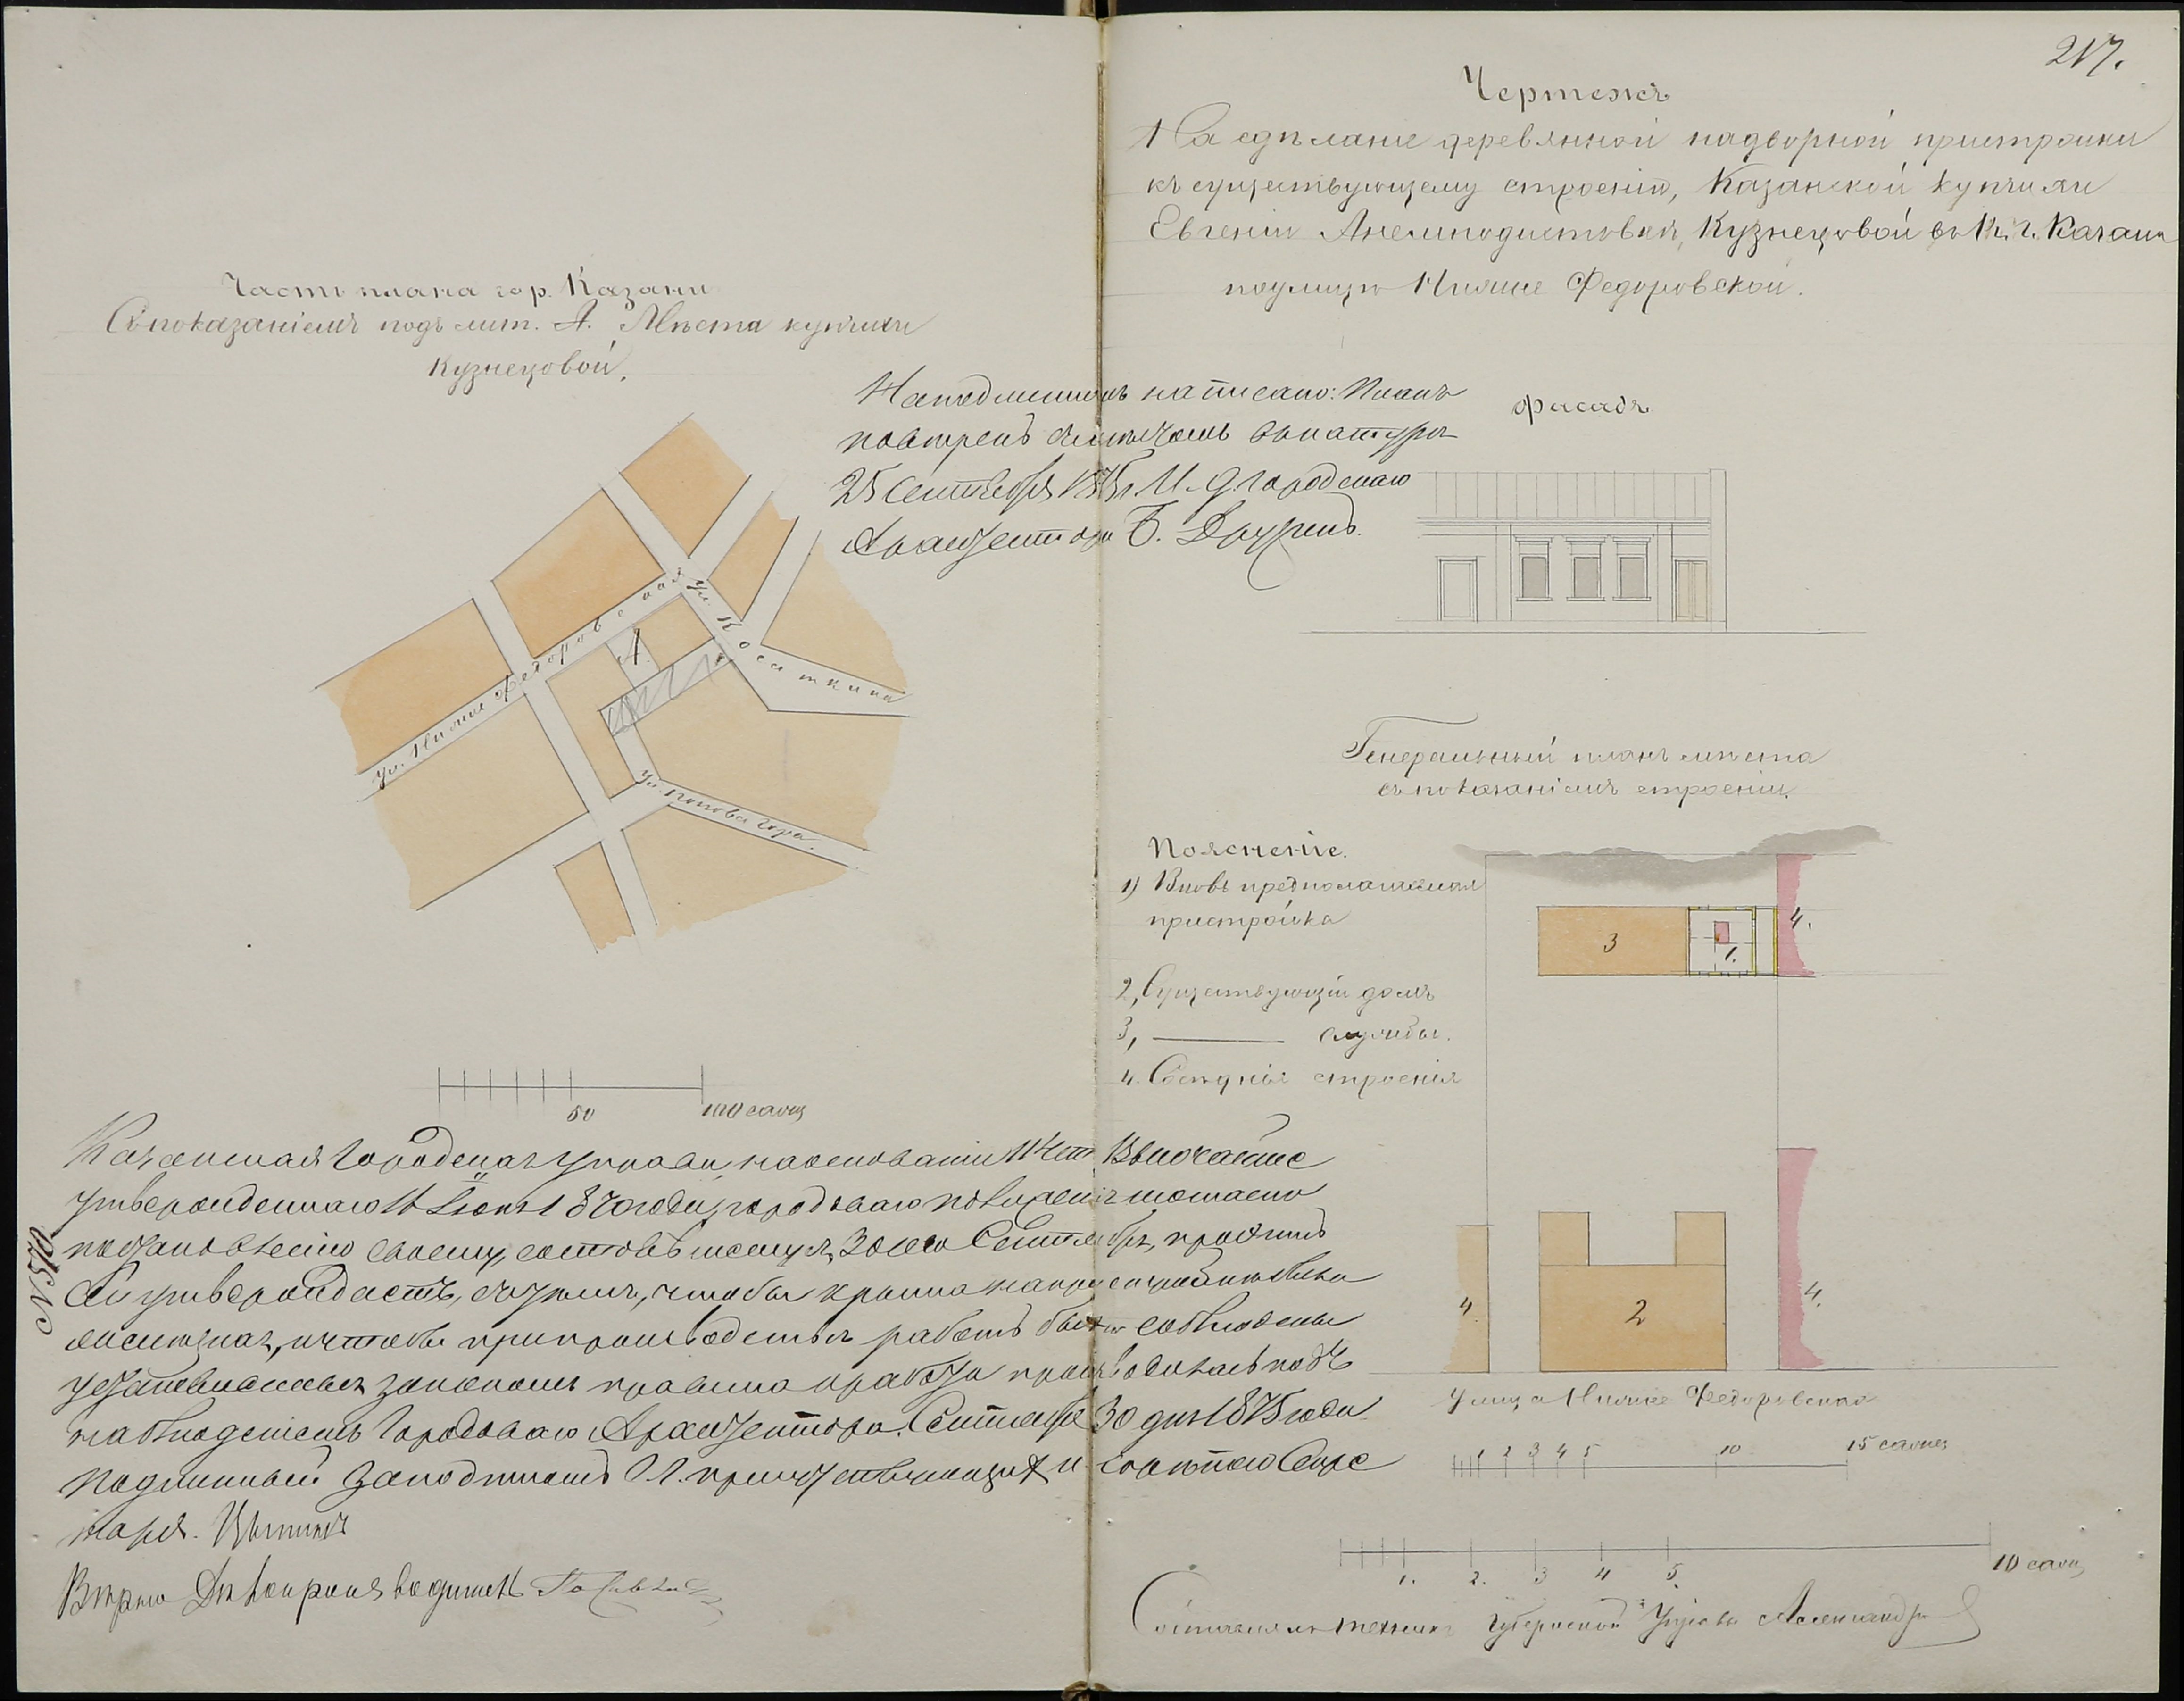 217.
Чертежъ
На сдѣланіе деревянной надворной пристройки
къ существующему строенію, Казанской купчихи
Евгеніи Анемподистовны, Кузнецовой въ г. Казани
по улицѣ Нижне Федоровской.
Часть плана гор. Казани
Съ показаніемъ подъ лит. А. Мѣста купчихи
Кузнецовой.
На подлинномъ написано: Планъ
повѣренъ съ мѣстомъ въ натурѣ
25 Сентября 1875 г. И. д. городскаго
Архитектора Б.
Фасадъ
ул. Нижне Федоровская
ул. Касаткина
А.
ул. Попова гора.
50 100 саж
Генеральный планъ мѣста
съ показаніемъ строеній.
Поясненіе.
1) Вновь предполагаемая
пристройка
2, Существующій домъ
3, службы.
4. Сосѣднія строенія
3 1. 4.
4 2 4.
Улица Нижне Федоровская
1 2 3 4 5 10 15 сажен
1. 2. 3 4 5. 10 саж
№ 570
Казанская Городская Управа, на основаніи 114 ст. Высочайше
утвержденнаго 16 Іюня 1870 года, городоваго положенія и согласно
постановленію своему, состоявшемуся 30 сего Сентября, проэктъ
сей утверждаетъ, съ тѣмъ, чтобы крыша на пристройкѣ была
желѣзная, и чтобы при производствѣ работъ были соблюдены
установленныя закономъ правила и работы производились подъ
наблюденіемъ Городоваго Архитектора. Сентября 30 дня 1875 года.
Подлинный за подписомъ Гг. присутствующихъ и скрѣпою Секре
таря.
Вѣрно Дѣлопроизводитель
Составлялъ техникъ Губернской Управы Александръ